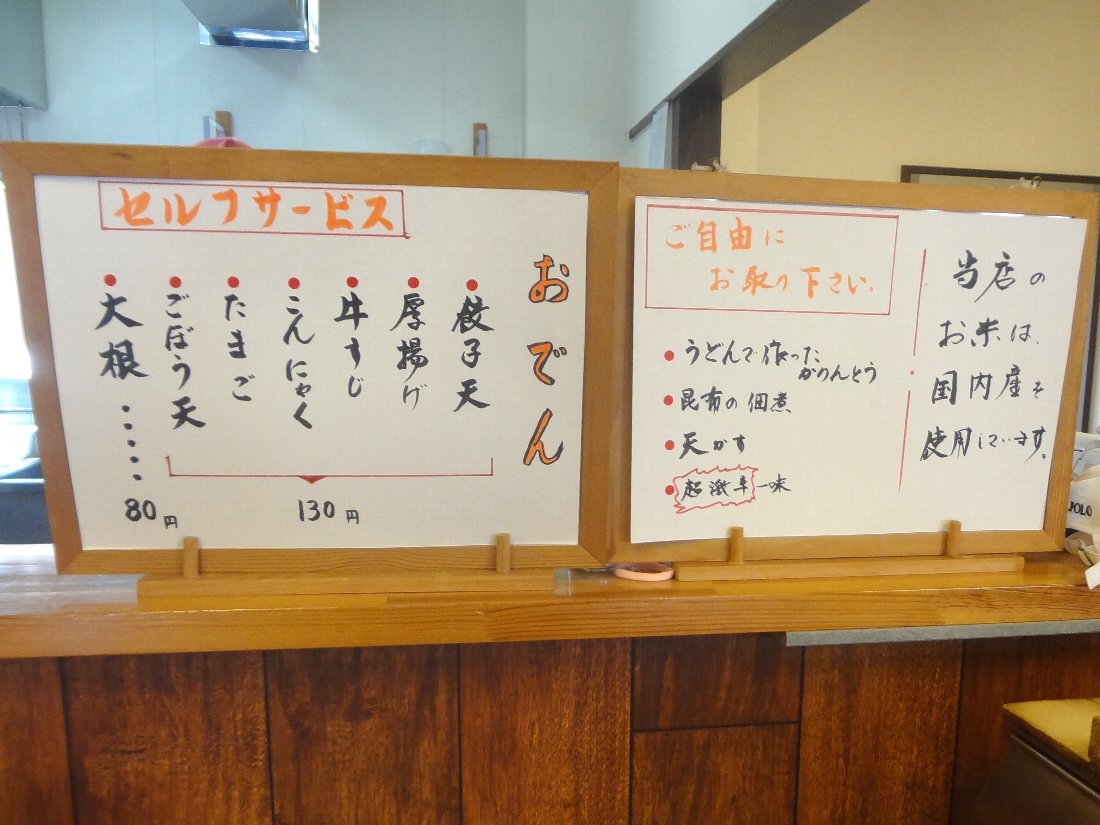 セルフサービス
おでん
餃子天
厚揚げ
牛すじ
こんにゃく
たまご
ごぼう天
130円
大根・・・・・
80円
ご自由に
お取り下さい。
うどんで作った
かりんとう
昆布の佃煮
天かす
超激辛一味
当店の
お米は、
国内産を
使用しています。
POLO